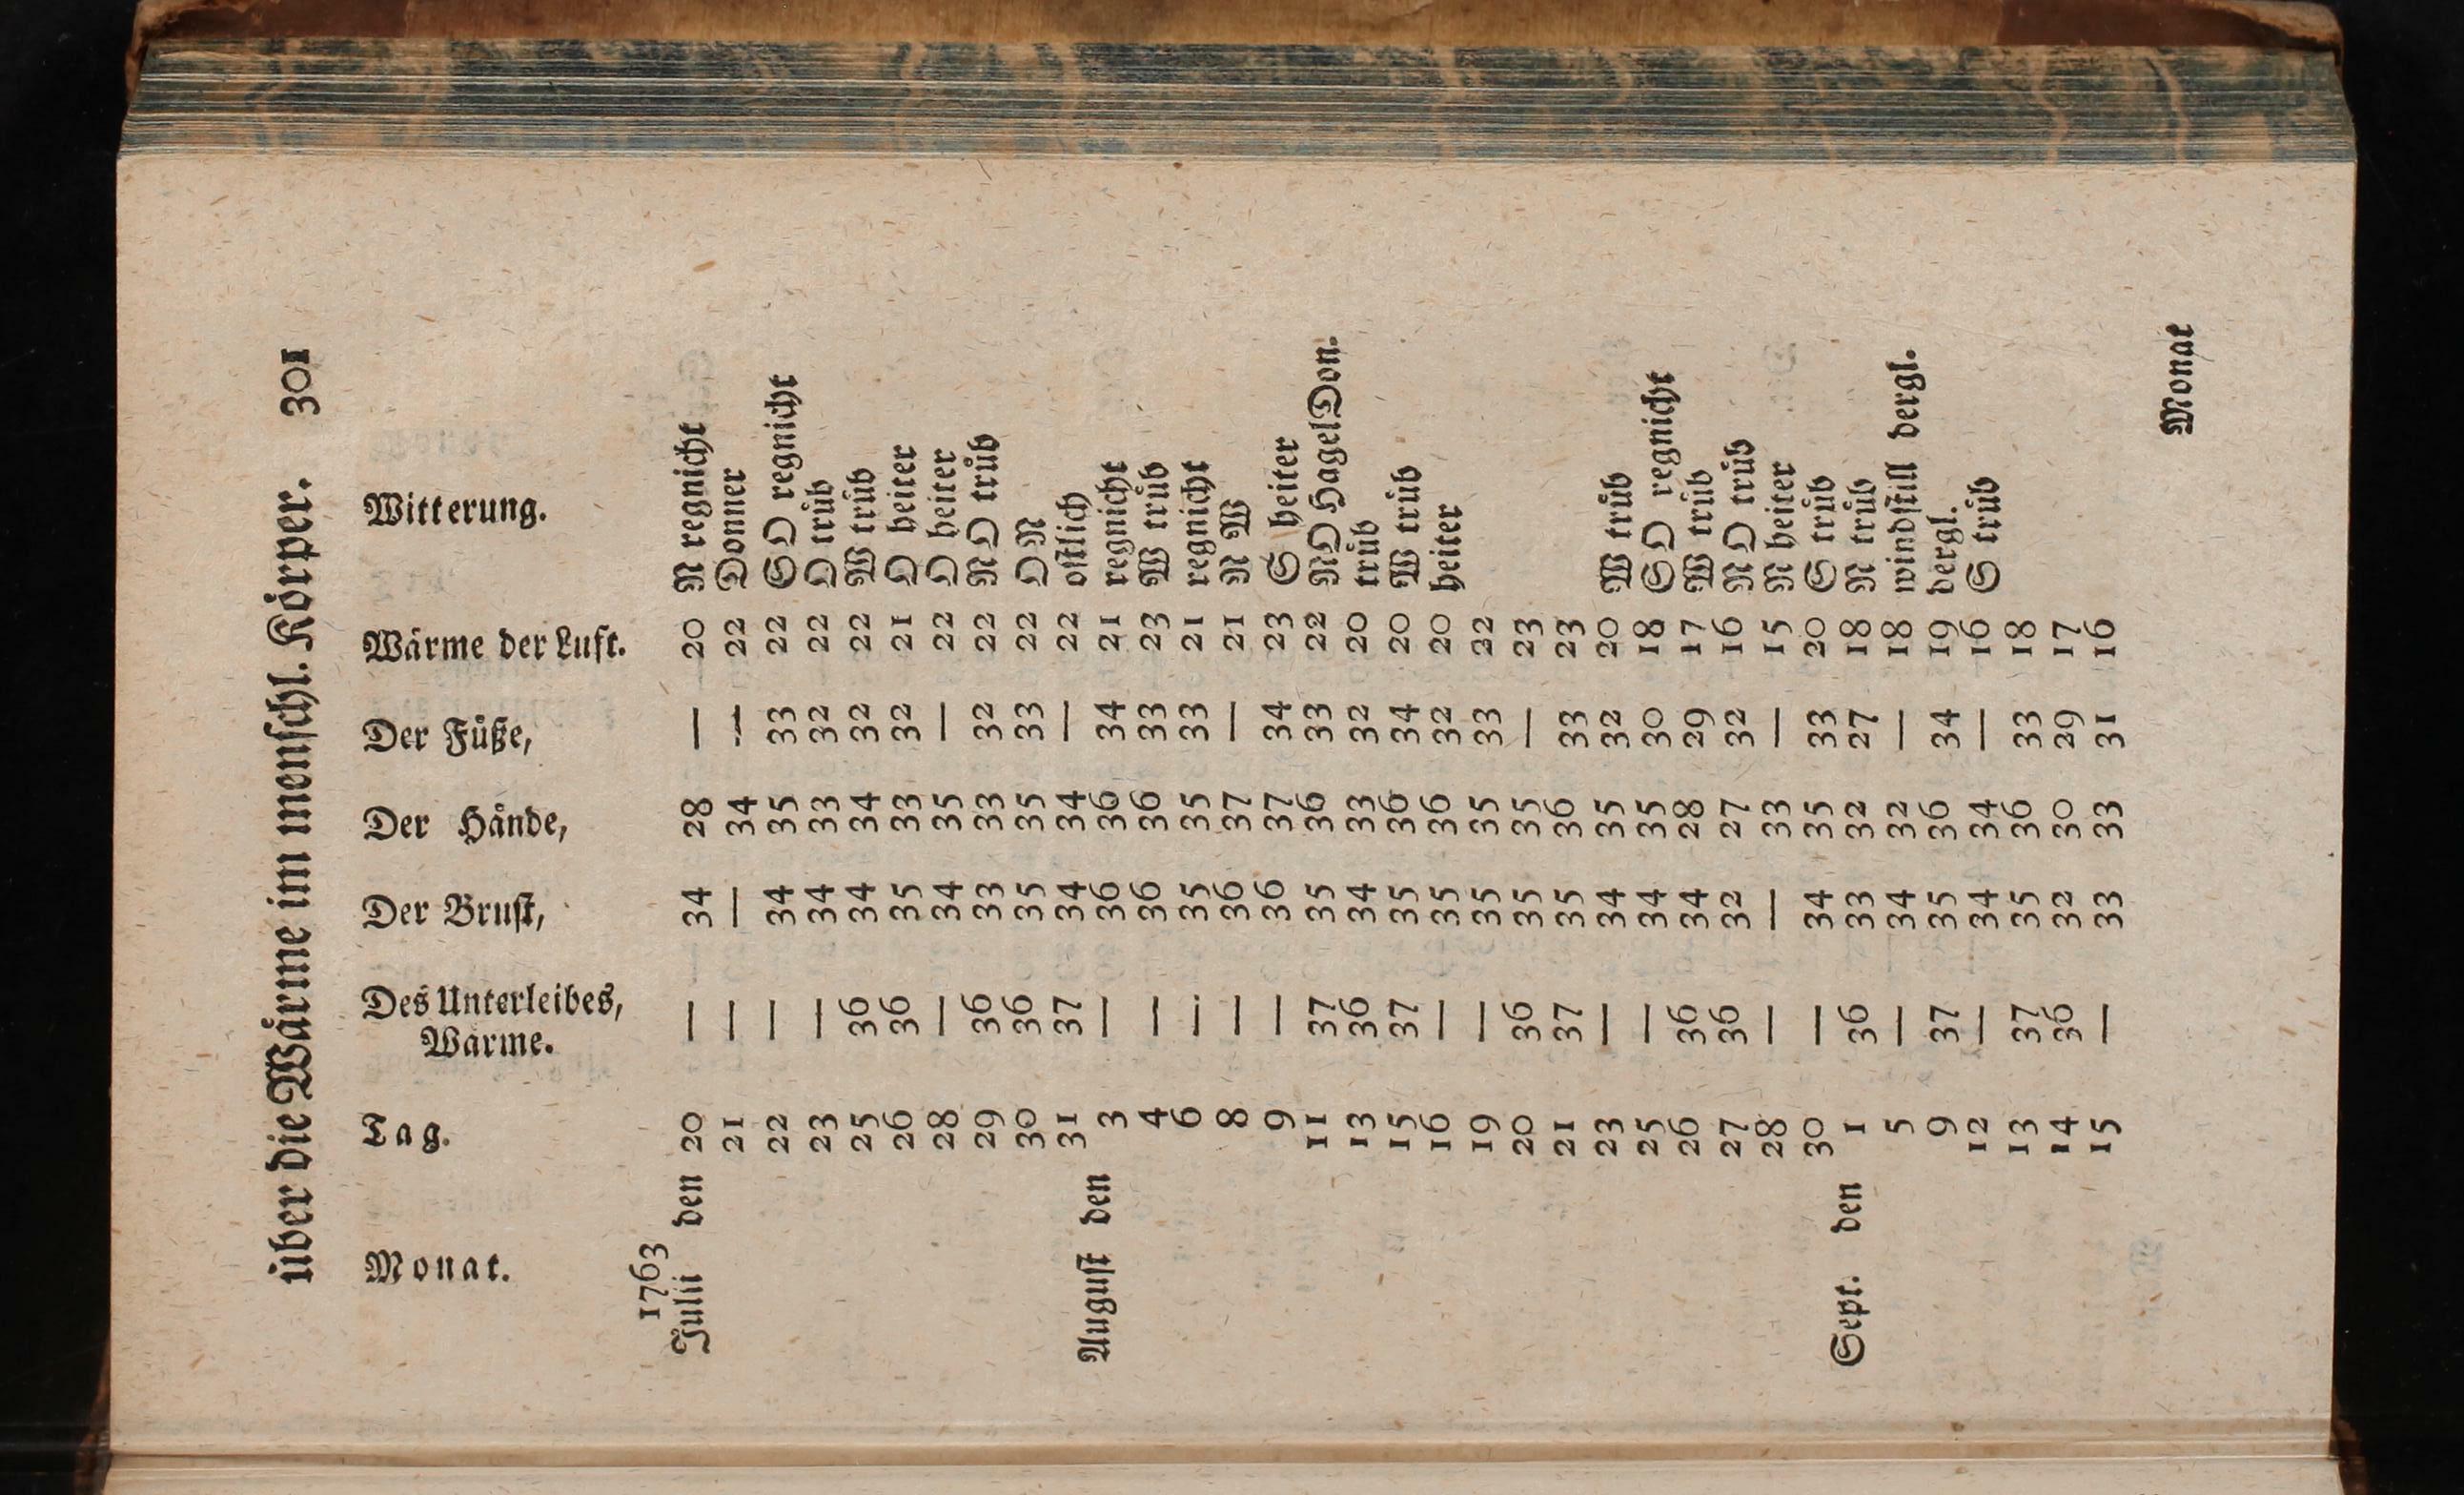 über die Wärme im menschl. Körper. 301
Monat. Tag. Des Unterleibes, Der Brust, Der Hände, Der Füße, Wärme der Luft. Witterung.
Wärme.
1763
Julii den 20 — 34 28 — 20 N regnicht
21 — — 34 — 22 Donner
22 — 34 35 33 22 SO regnicht
23 — 34 33 32 22 O trüb
25 36 34 34 32 22 W trüb
26 36 35 33 32 21 O heiter
28 — 34 35 — 22 O heiter
29 36 33 33 32 22 NO trüb
30 36 35 35 33 22 O N
31 37 34 34 — 22 ostlich
August den 3 — 36 36 34 21 regnicht
4 — 36 36 33 23 W trüb
6 — 35 35 33 21 regnicht
8 — 36 37 — 21 N W
9 — 36 37 34 23 S heiter
11 37 35 36 33 22 NO Hagel Don.
13 36 34 33 32 20 trüb
15 37 35 36 34 20 W trüb
16 — 35 36 32 20 heiter
19 — 35 35 33 22
20 36 35 35 — 23
21 37 35 36 33 23
23 — 34 35 32 20 W trüb
25 — 34 35 30 18 SO regnicht
26 36 34 28 29 17 W trüb
27 36 32 27 32 16 NO trüb
28 — — 33 — 15 N heiter
30 — 34 35 33 20 S trüb
Sept. den 1 36 33 32 27 18 N trüb
5 — 34 32 — 18 windstill dergl.
9 37 35 36 34 19 dergl.
12 — 34 34 — 16 S trüb
13 37 35 36 33 18
14 36 32 30 29 17
15 — 33 33 31 16
Monat